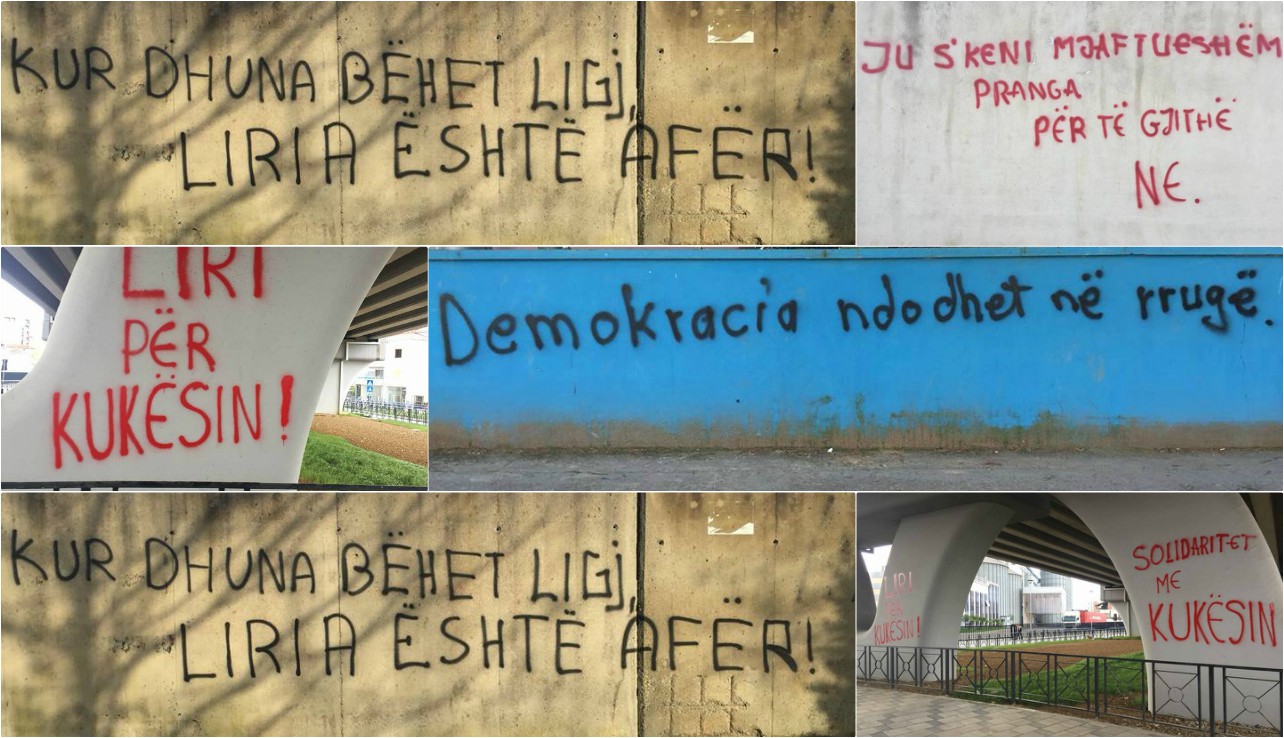 KUR DHUNA BËHET LIGJ,
LIRIA ËSHTË AFËR!
JU S'KENI MJAFTUESHËM
PRANGA
PËR TË GJITHË
NE.
LIRI
PËR
KUKËSIN!
Demokracia ndodhet në rrugë.
KUR DHUNA BËHET LIGJ,
LIRIA ËSHTË AFËR!
LIRI
PËR
KUKËSIN!
SOLIDARITET
ME
KUKËSIN